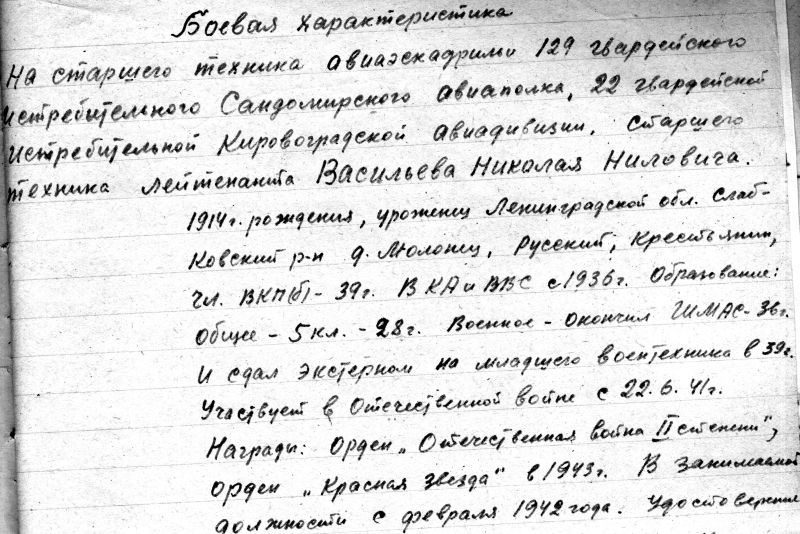 Боевая характеристика
На старшего техника авиаэскадрильи 129 гвардейского
истребительного Сандомирского авиаполка, 22 гвардейской
истребительной Кировоградской авиадивизии, старшего
техника лейтенанта Васильева Николая Ниловича.
1914г. рождения, уроженец Ленинградской обл. Слаб-
ковский р-н д. Молонец, Русский, Крестьянин,
Чл. ВКП(б) - 39г. В КА и ВВС с 1936г. Образование:
Общее - 5 кл. - 28г. Военное - окончил ШМАС - 36г.
И сдал экстерном на младшего воентехника в 39г.
Участвует в Отечественной войне с 22.6.41г.
Награды: Орден „Отечественная война II степени",
орден „Красная Звезда" в 1943г. В занимаемой
должности с февраля 1942 года. Удостоверение